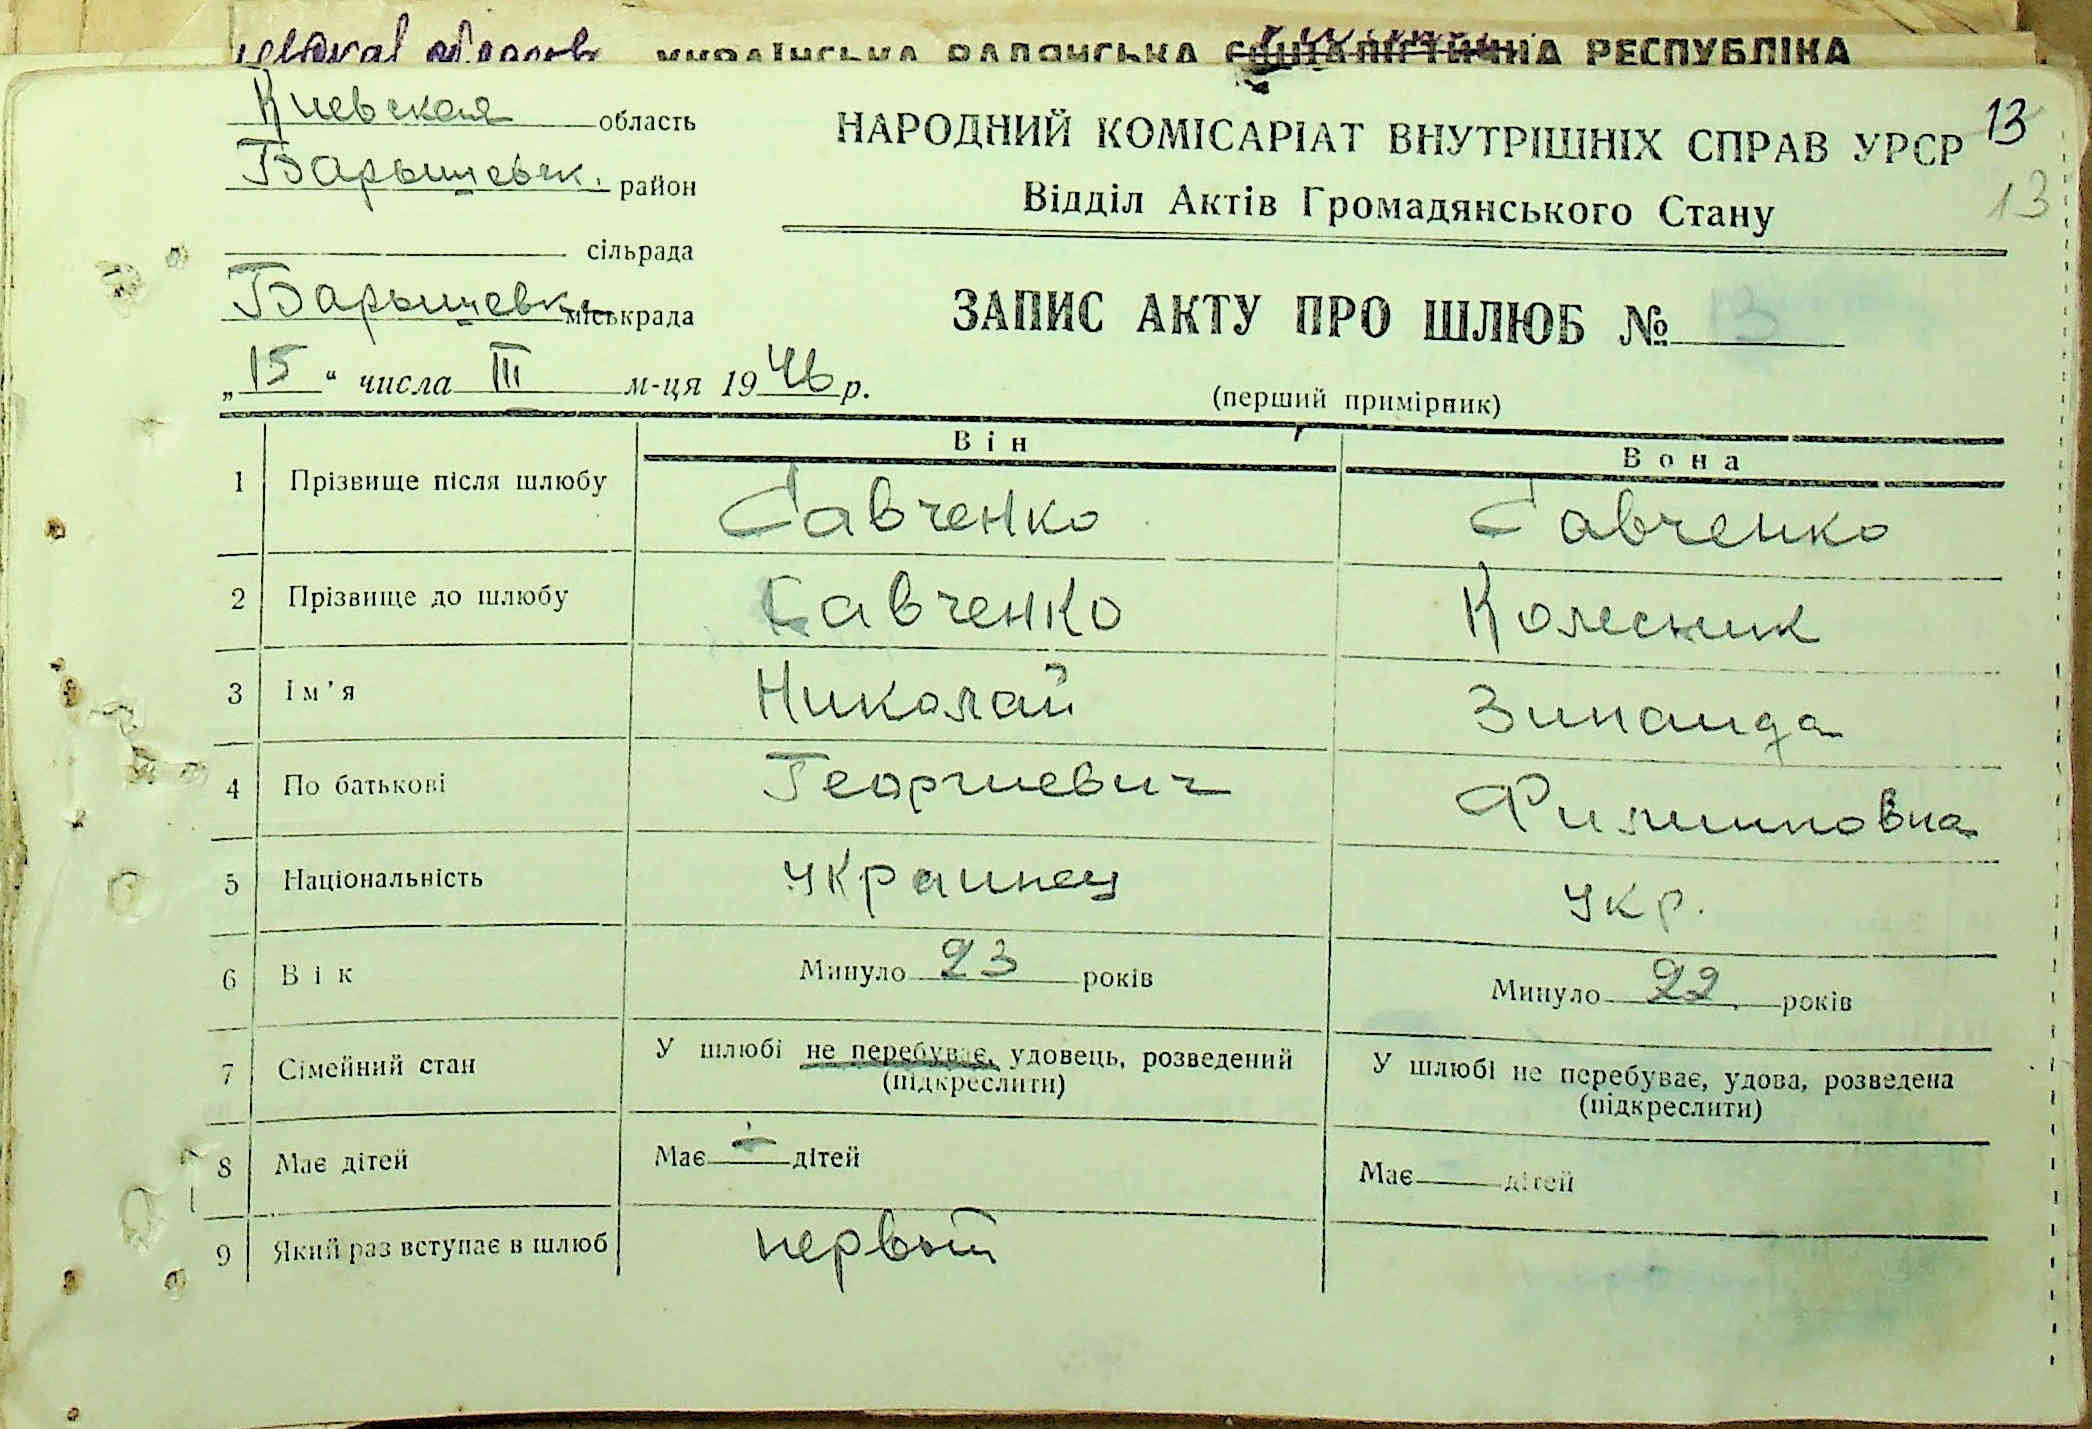 УКРАЇНСЬКА РАДЯНСЬКА СОЦІАЛІСТИЧНА РЕСПУБЛІКА
Киевская область
Барышевск. район
сільрада
Барышевк. міськрада
„15“ числа III м-ця 1946 р.
13
13
НАРОДНИЙ КОМІСАРІАТ ВНУТРІШНІХ СПРАВ УРСР
Відділ Актів Громадянського Стану
ЗАПИС АКТУ ПРО ШЛЮБ № 13
(перший примірник)
Він Вона
1 Прізвище після шлюбу Савченко Савченко
2 Прізвище до шлюбу Савченко Колесник
3 Ім'я Николай Зинаида
4 По батькові Георгиевич Филипповна
5 Національність украинец укр.
6 Вік Минуло 23 років Минуло 22 років
7 Сімейний стан У шлюбі не перебуває, удовець, розведений (підкреслити) У шлюбі не перебуває, удова, розведена (підкреслити)
8 Має дітей Має — дітей Має дітей
9 Який раз вступає в шлюб первый